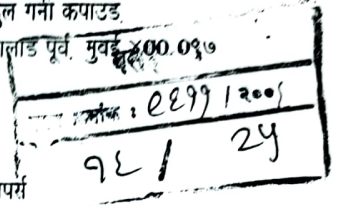 ल गनी कंपाउंड,
लाड पूर्व, मुंबई ४00.0१७
क्रमांक : ९६११ / २००
१६ / २५
पर्स